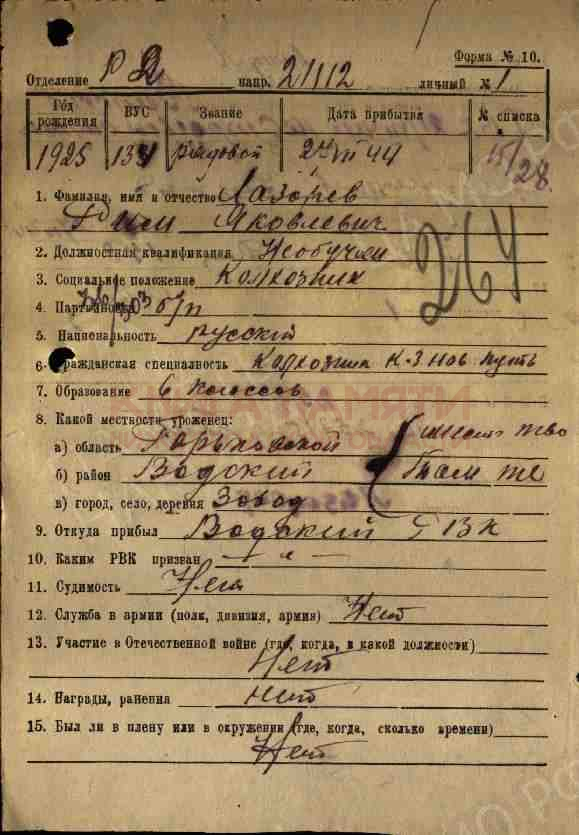 Форма № 10.
Отделение РД напр. 21112 личный № 1
Год рождения ВУС Звание Дата прибытия № списка
1925 134 рядовой 2 VII 44 15/28
1. Фамилия, имя и отчество Лазарев
Яковлевич
264
2. Должностная квалификация Необучен
3. Социальное положение Колхозник
4. Партийность б/п
5. Национальность русский
6. Гражданская специальность Колхозник К-З Нов. Путь
7. Образование 6 классов
КНИГА ПАМЯТИ
8. Какой местности уроженец:
а) область Горьковской
б) район Вадский Там же
в) город, село, деревня Завод
9. Откуда прибыл Вадский РВК
10. Каким РВК призван — " —
11. Судимость Нет
12. Служба в армии (полк, дивизия, армия) Нет
13. Участие в Отечественной войне (где, когда, в какой должности)
Нет
14. Награды, ранения нет
15. Был ли в плену или в окружении (где, когда, сколько времени)
Нет